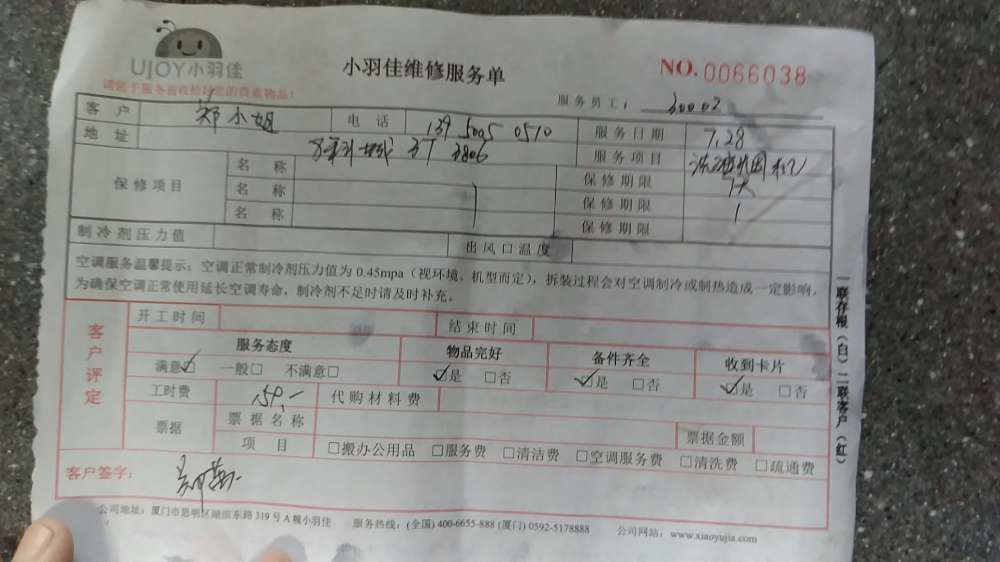 UJOY小羽佳
小羽佳维修服务单
NO.0066038
服务员工： 30002
客户 郑小姐 电话 139 5005 0510 服务日期 7.28
地址 37 3806 服务项目
保修项目 名称 保修期限 7天
名称 保修期限 1
名称 保修期限
制冷剂压力值 出风口温度
空调服务温馨提示：空调正常制冷剂压力值为 0.45mpa（视环境、机型而定），拆装过程会对空调制冷或制热造成一定影响，
为确保空调正常使用延长空调寿命，制冷剂不足时请及时补充。
客户评定
开工时间 结束时间
服务态度 物品完好 备件齐全 收到卡片
满意☑ 一般□ 不满意□ ☑是 □否 ☑是 □否 ☑是 □否
工时费 150.- 代购材料费
票据 票据名称 票据金额
项目 □搬办公用品 □服务费 □清洁费 □空调服务费 □清洗费 □疏通费
客户签字：
公司地址：厦门市思明区湖滨东路 319 号 A 幢小羽佳 服务热线：(全国) 400-6655-888 (厦门) 0592-5178888 公司网站：www.xiaoyujia.com
一联存根（白）二联客户（红）